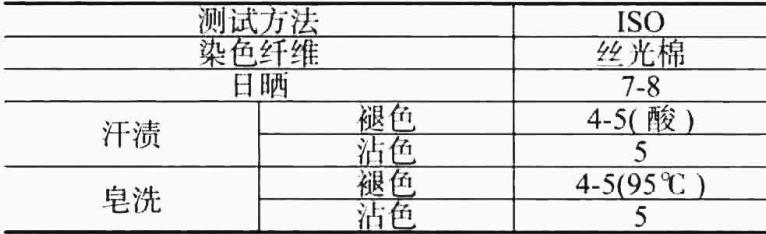 测试方法 ISO
染色纤维 丝光棉
日晒 7-8
汗渍 褪色 4-5(酸)
沾色 5
皂洗 褪色 4-5(95℃)
沾色 5